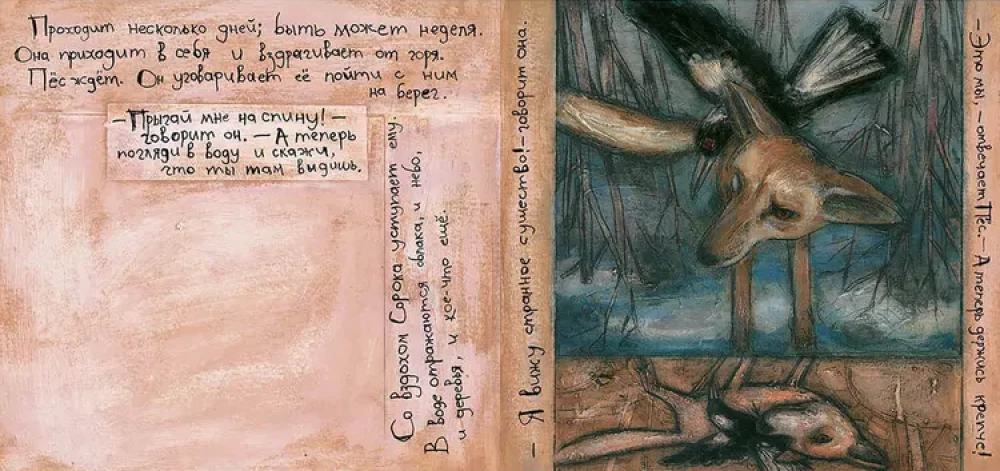 Проходит несколько дней; быть может неделя.
Она приходит в себя и вздрагивает от горя.
Пёс ждёт. Он уговаривает её пойти с ним
на берег.
—Прыгай мне на спину!—
говорит он.—А теперь
погляди в воду и скажи,
что ты там видишь.
Со вздохом Сорока уступает ему.
В воде отражаются облака, и небо,
и деревья, и кое-что ещё.
— Я вижу странное существо!—говорит она.
—Это мы,—отвечает Пёс.—А теперь держись крепче!